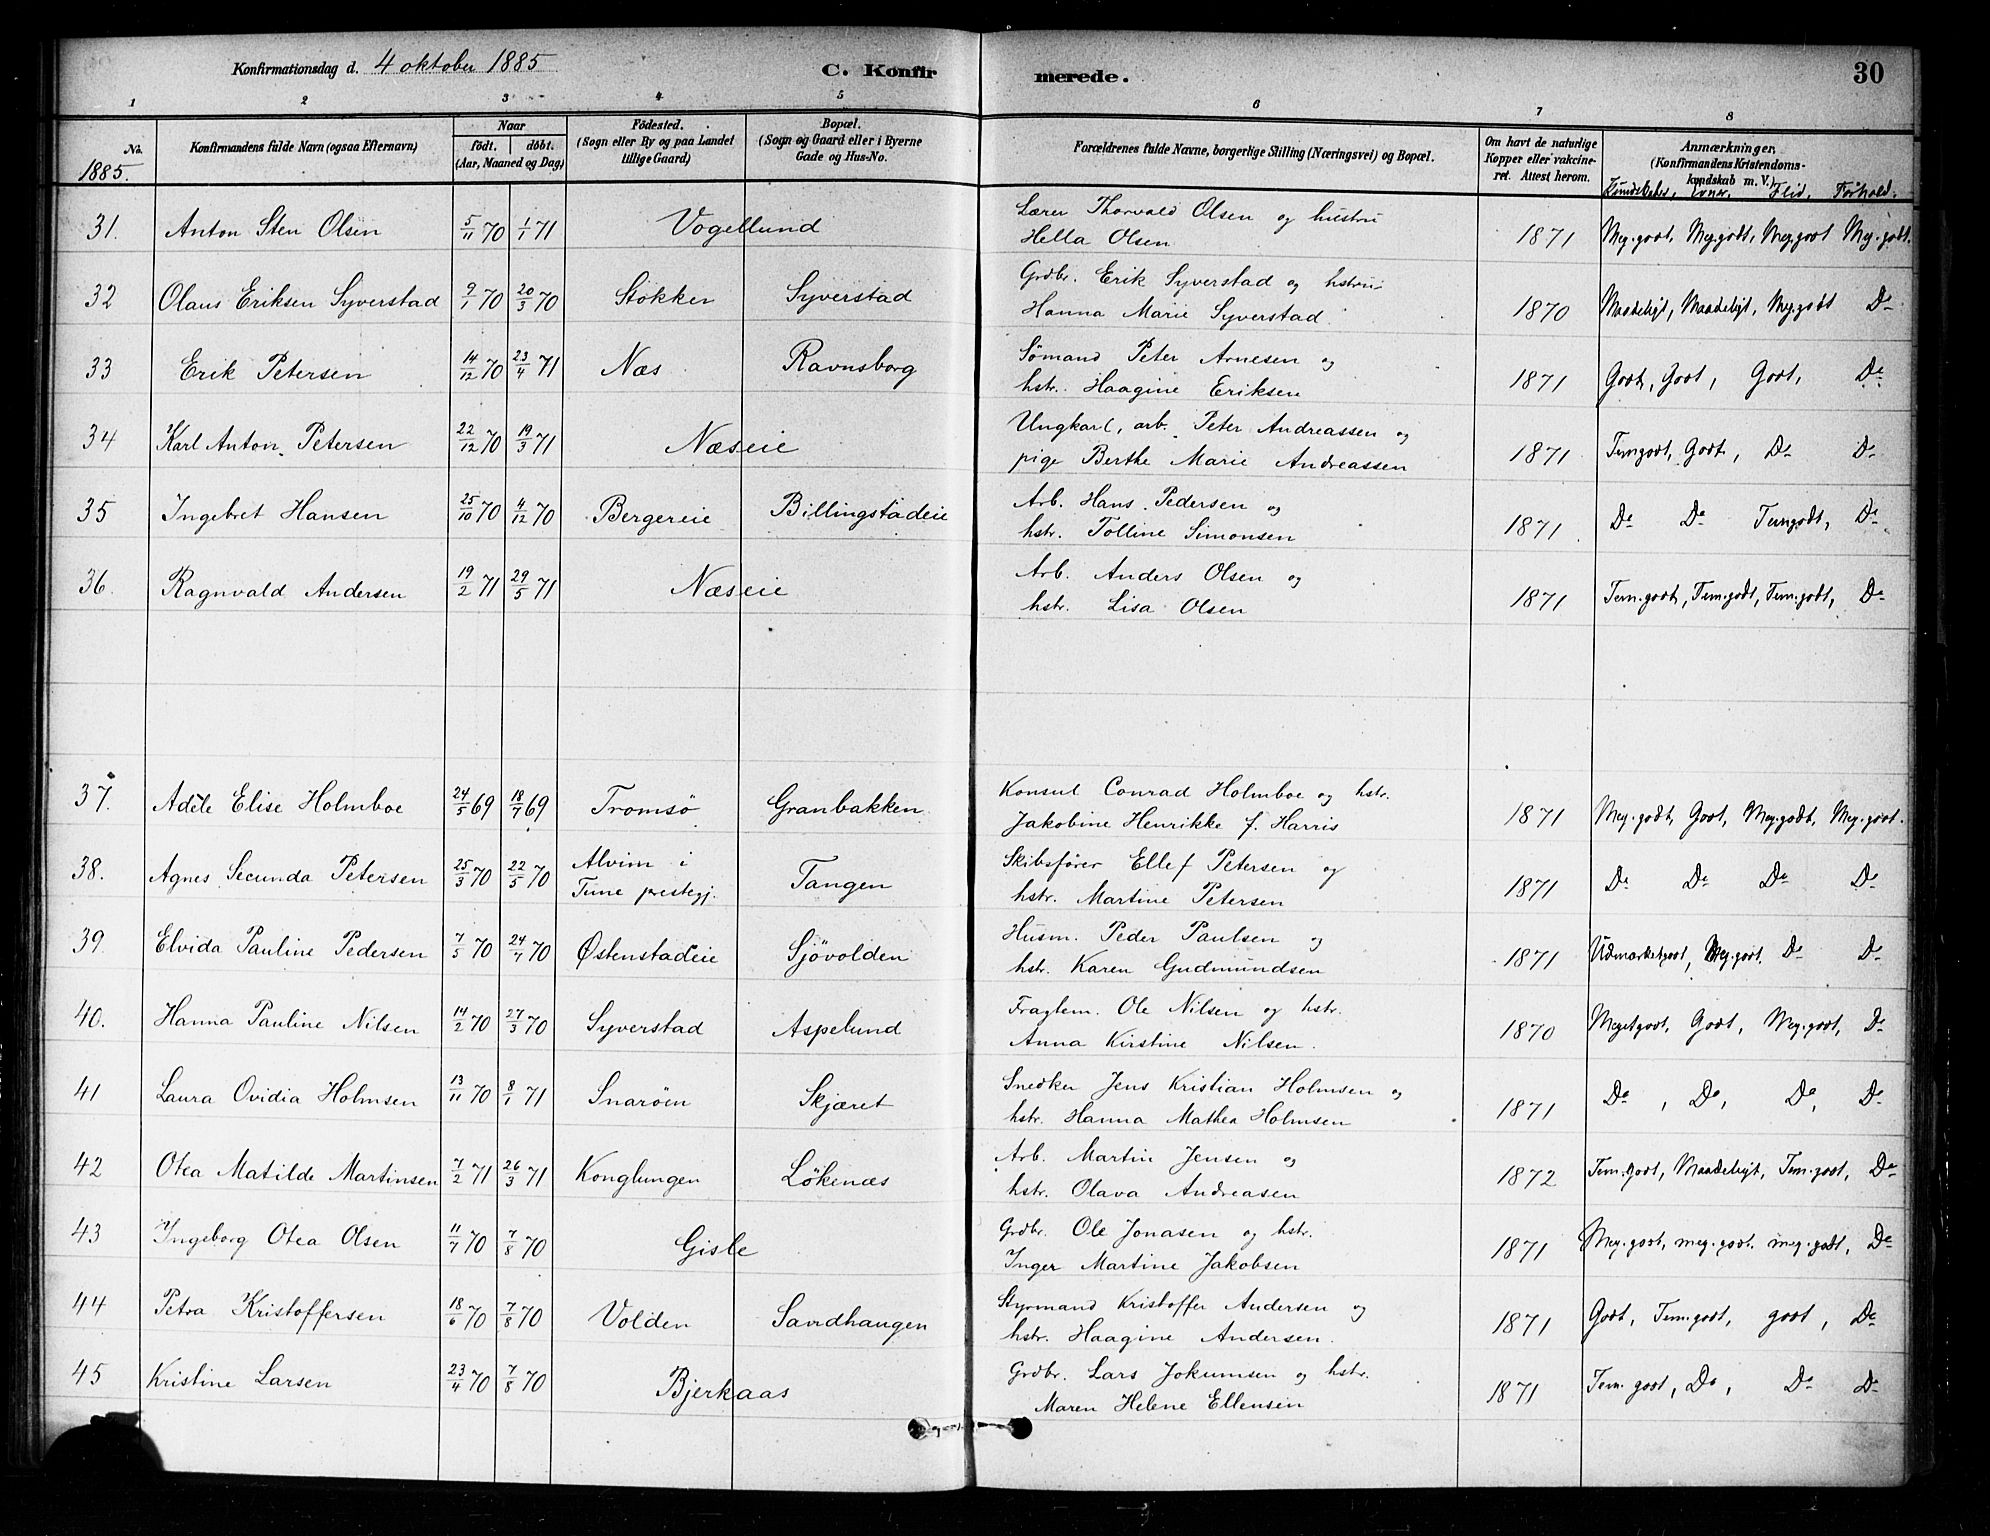 Konfirmationsdag d. 4 oktober 1885
C. Konfirmerede.
30
1 2 3 4 5 6 7 8
No. Konfirmandens fulde Navn (ogsaa Efternavn) Naar født. døbt. (Aar, Maaned og Dag) Fødested. (Sogn eller By og paa Landet tillige Gaard) Bopæl. (Sogn og Gaard eller i Byerne Gade og Hus-No. Forældrenes fulde Navne, borgerlige Stilling (Næringsvei) og Bopæl. Om havt de naturlige Kopper eller vakcineret. Attest herom. Anmærkninger, (Konfirmandens Kristendomskundskab m. V.)
1885. Kundskaber, Evner, Flid, Forhold.
31. Anton Sten Olsen 5/11 70 1/1 71 Vogellund Lærer Thorvald Olsen og hustru
Hella Olsen 1871 Meg. godt, Meg. godt, Meg. godt Meg. godt.
32 Olaus Eriksen Syverstad 9/1 70 20/3 70 Stokker Syverstad Grdbr. Erik Syverstad og hstru
Hanna Marie Syverstad. 1870 Maadeligt, Maadeligt, Meg. godt Do
33 Erik Petersen 14/12 70 23/4 71 Næs Ravnsborg Sømand Peter Arnesen og
hstr. Haagine Eriksen 1871 Godt, Godt, Godt, Do
34 Karl Anton Petersen 22/12 70 19/3 71 Næseie Ungkarl, arb. Peter Andreassen og
pige Berthe Marie Andreassen 1871 Tem godt, Godt, Do Do
35 Ingebret Hansen 25/10 70 4/12 70 Bergereie Billingstadeie Arb. Hans Pedersen og
hstr. Tolline Simonsen 1871 Do Do Tem godt, Do
36. Ragnvald Andersen 19/2 71 29/5 71 Næseie Arb. Anders Olsen og
hstr. Lisa Olsen 1871 Tem. godt, Tem. godt, Tem. godt, Do
37. Adéle Elise Holmboe 24/5 69 18/7 69 Tromsø Granbakken Konsul Conrad Holmboe og hstr.
Jakobine Henrikke f. Harris 1871 Meg. godt, Godt, Meg. godt, Meg. godt.
38. Agnes Secunda Petersen 25/3 70 22/5 70 Alvim i Tune prestegj. Tangen Skibsfører Ellef Petersen og
hstr. Martine Petersen 1871 Do Do Do Do
39. Elvida Pauline Pedersen 7/5 70 24/7 70 Østenstadeie Sjøvolden Husm. Peder Paulsen og
hstr. Karen Gudmundsen 1871 Udmærketgodt, Meg. godt. Do Do
40. Hanna Pauline Nilsen 14/2 70 27/3 70 Syverstad Aspelund Fragtem. Ole Nilsen og hstr.
Anna Kirstine Nilsen. 1870 Megetgodt, Godt, Meg. godt, Do
41 Laura Ovidia Holmsen 13/11 70 8/1 71 Snarøen Skjæret Snedker Jens Kristian Holmsen og
hstr. Hanna Mathea Holmsen 1871 Do, Do, Do, Do
42 Otea Matilde Martinsen 7/2 71 26/3 71 Konglungen Løkenæs Arb. Martin Jensen og
hstr. Olava Andreasen 1872 Tem. godt, Maadeligt, Tem. godt, Do
43 Ingeborg Otea Olsen 11/7 70 7/8 70 Gisle Grdbr. Ole Jonasen og hstr.
Inger Martine Jakobsen 1871 Meg. godt, meg. godt. meg. godt, Do
44 Petra Kristoffersen 18/6 70 7/8 70 Volden Sandhaugen Styrmand Kristoffer Andersen og
hstr. Haagine Andersen. 1871 Godt, Tem. godt, godt, Do
45 Kristine Larsen 23/4 70 7/8 70 Bjerkaas Grdbr. Lars Jokumsen og hstr.
Maren Helene Ellensen 1871 Tem. godt, Do, Do Do